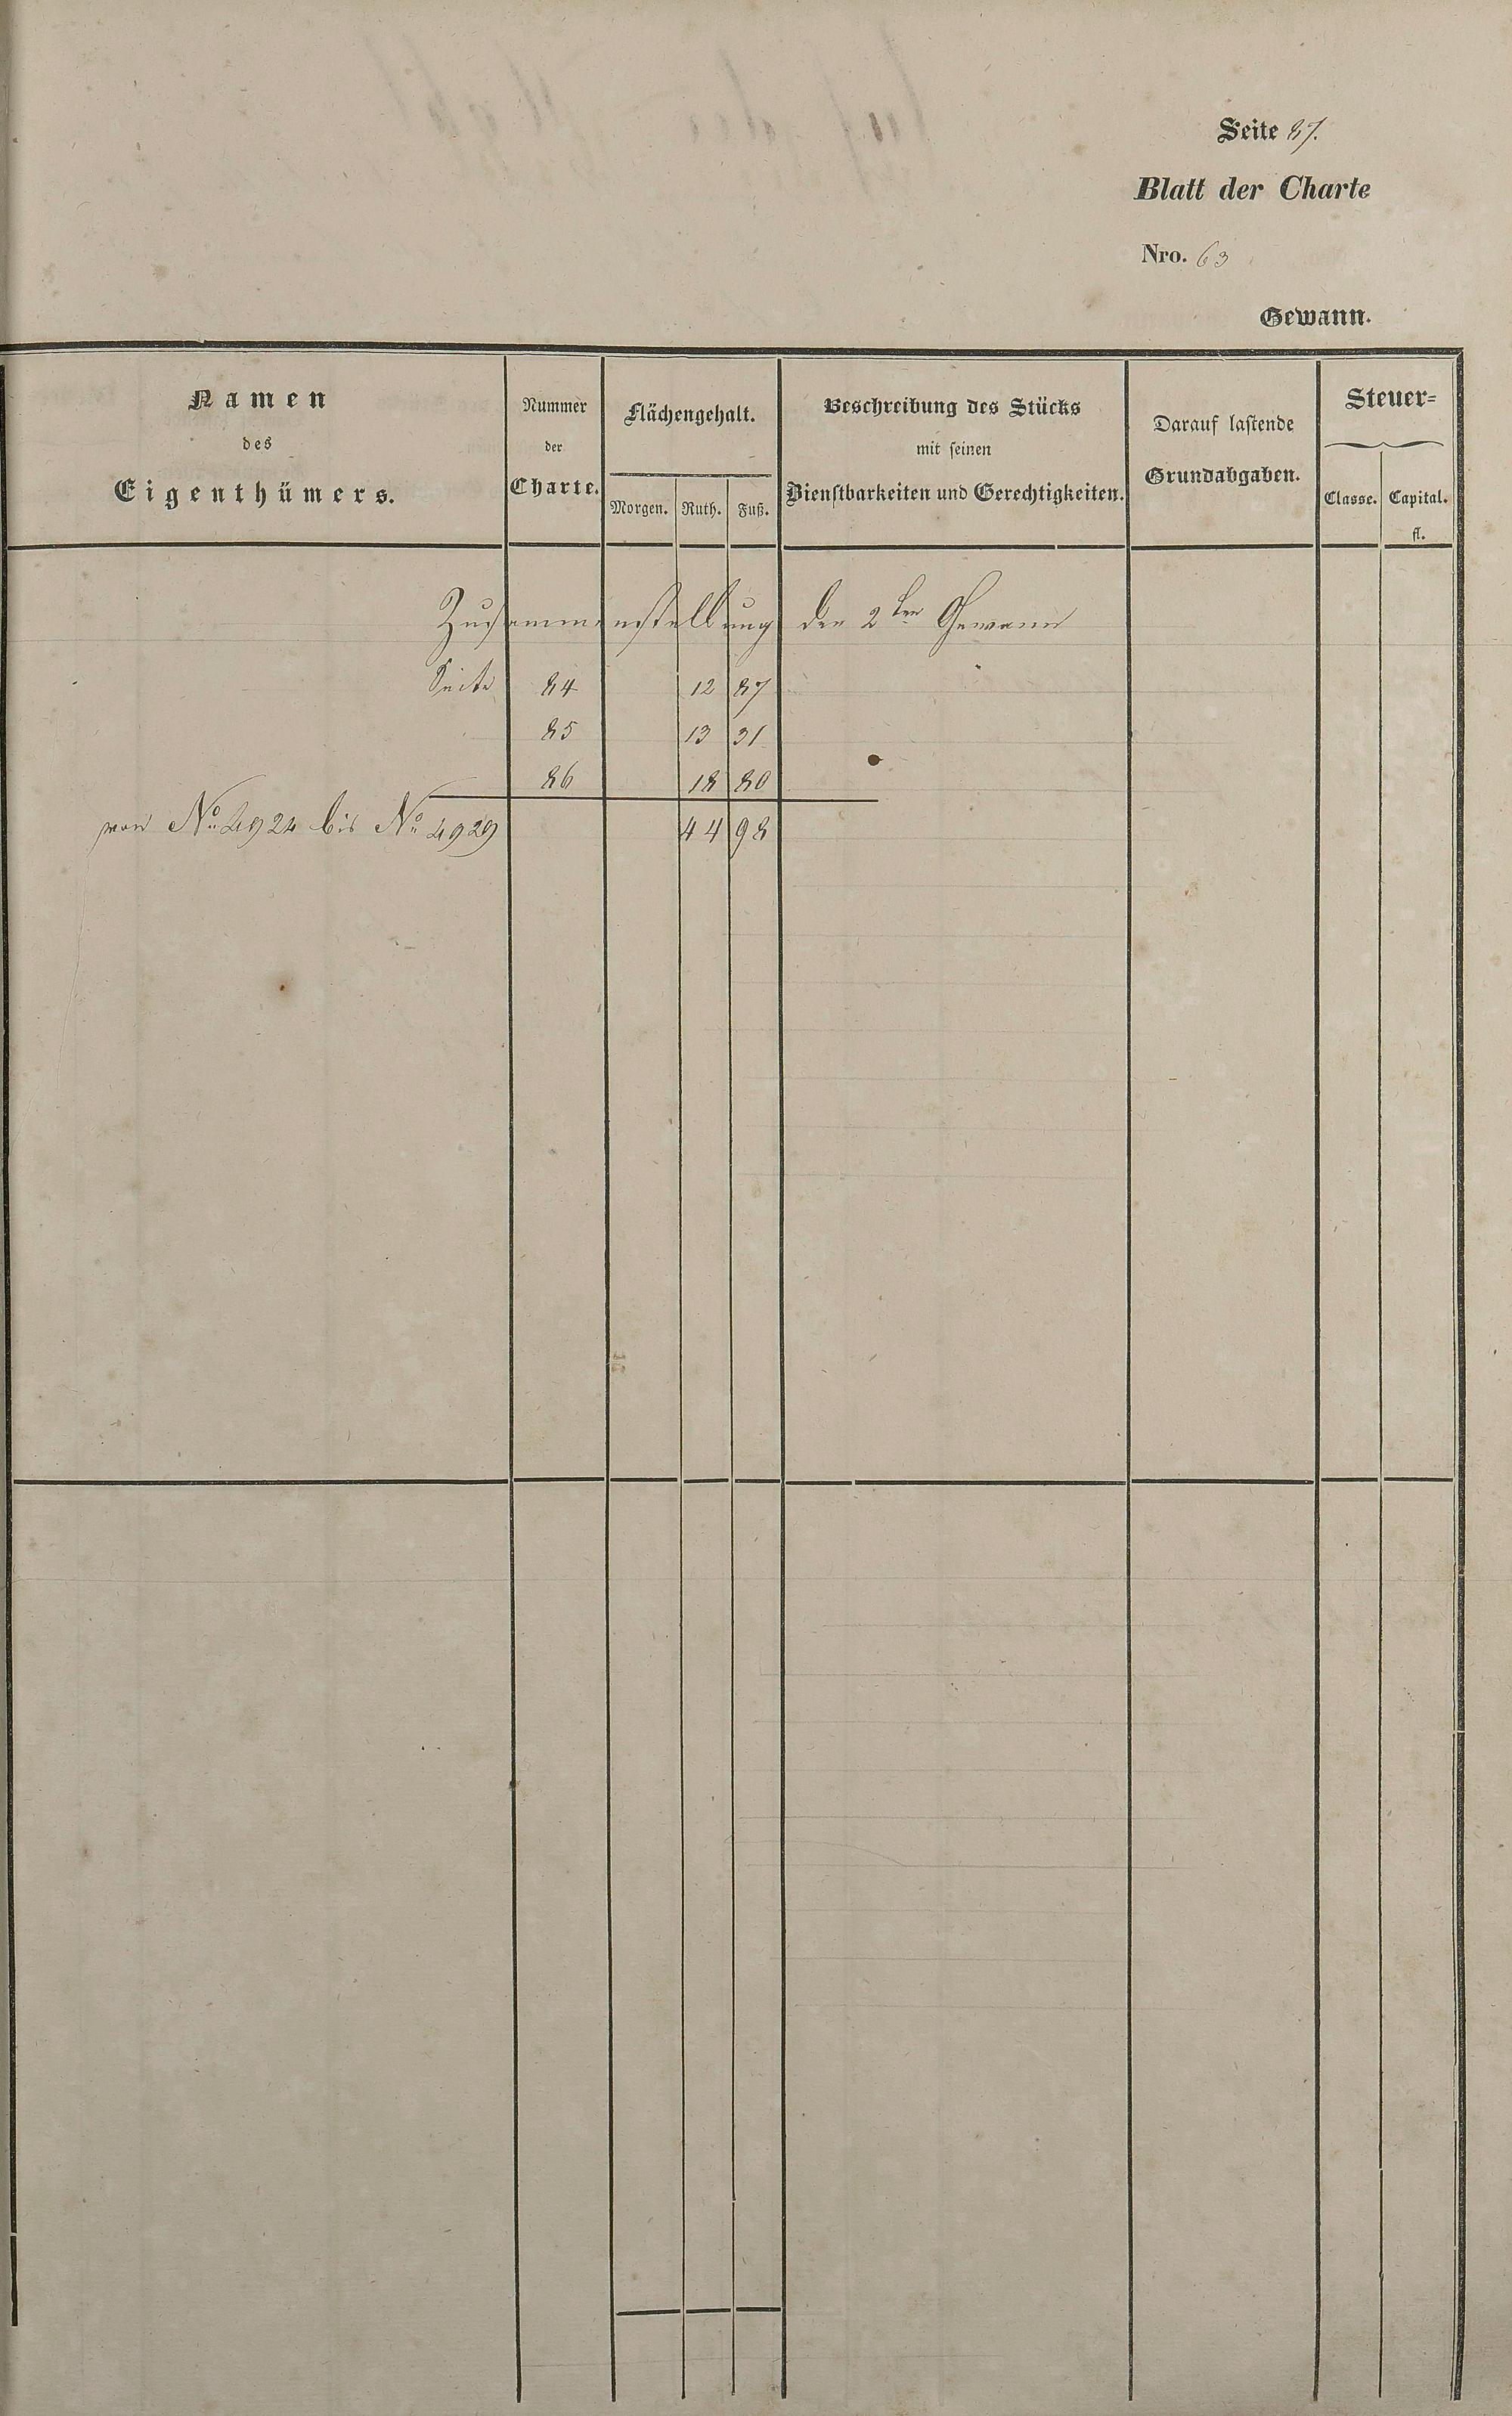 Seite 87.
Blatt der Charte
Nro. 63
Gewann.
Namen
des
Eigenthümers.
Nummer
der
Charte.
Flächengehalt.
Morgen. Ruth. Fuß.
Beschreibung des Stücks
mit seinen
Dienstbarkeiten und Gerechtigkeiten.
Darauf lastende
Grundabgaben.
Steuer=
Classe. Capital.
fl.
Zusammenstellung der 2ten Gewann
Seite 84 12 87
85 13 31
86 18 80
von No. 4924 bis No. 4929 44 98